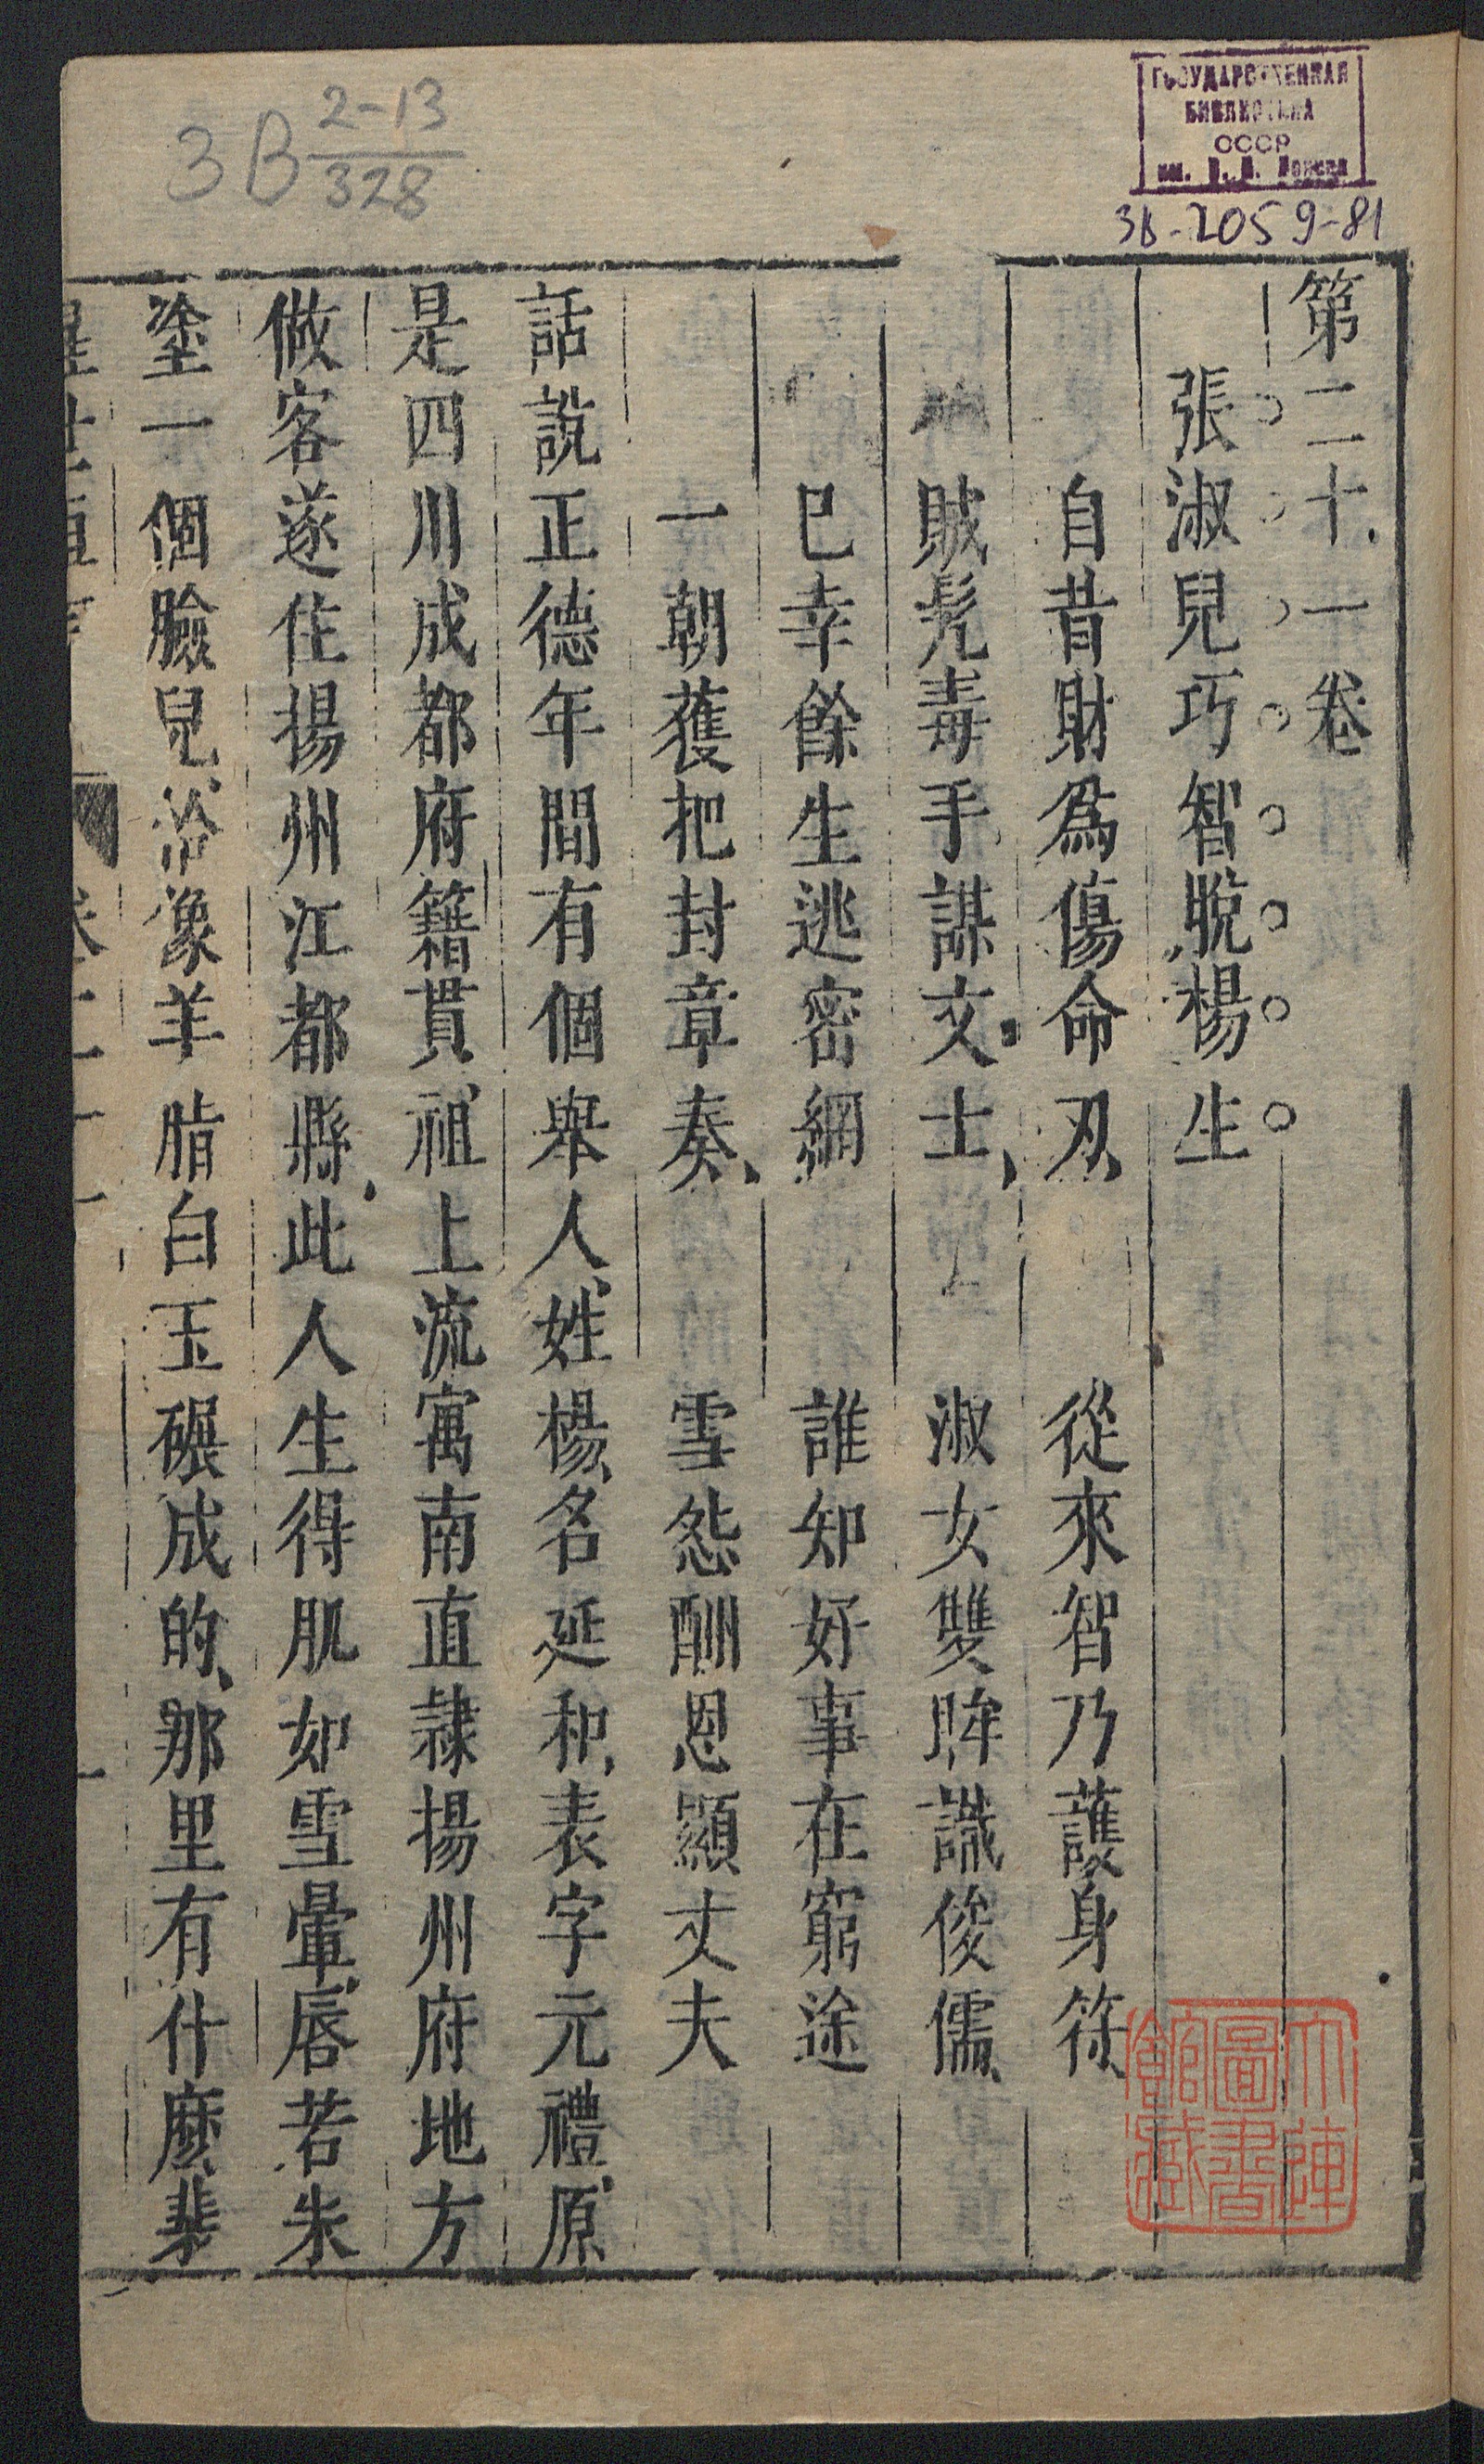 3B 2-13
328
ГОСУДАРСТВЕННАЯ
БИБЛИОТЕКА
СССР
им. В. И. Ленина
3В-2059-81
第二十一卷
張淑兒巧智脫楊生
自昔財爲傷命刃、從來智乃護身符、
賊髠毒手謀文士、淑女雙眸識俊儒、
巳幸餘生逃密網 誰知好事在窮途
一朝獲把封章奏、雪怨酬恩顯丈夫
話說正德年間有個舉人、姓楊、名延和、表字元禮、原
是四川成都府籍貫、祖上流寓南直隸揚州府地方
做客遂住揚州江都縣、此人生得肌如雪暈、唇若朱
塗一個臉兒、恰像羊脂白玉碾成的、那里有什麽裴
大連圖書館藏